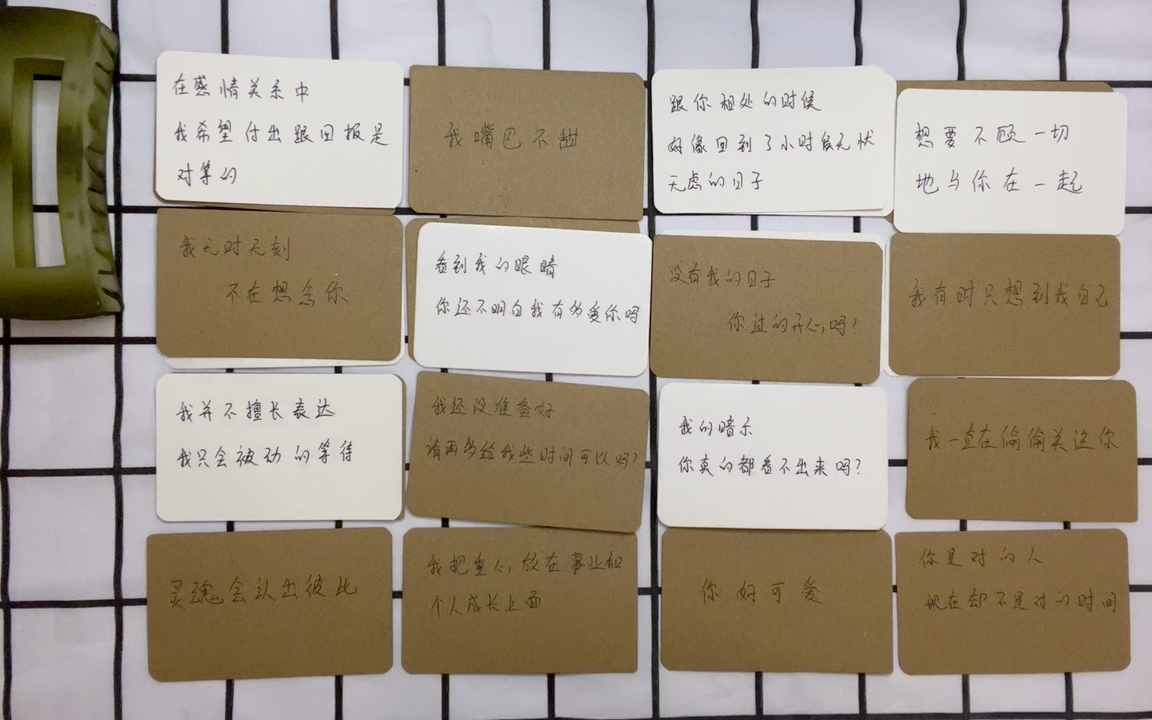 在感情关系中
我希望付出跟回报是
对等的
我嘴巴不甜
跟你相处的时候
好像回到了小时候无忧
无虑的日子
想要不顾一切
地与你在一起
我无时无刻
不在想念你
看到我的眼睛
你还不明白我有多爱你吗
没有我的日子
你过的开心吗?
我有时只想到我自己
我并不擅长表达
我只会被动的等待
我还没准备好
请再多给我些时间可以吗?
我的暗示
你真的都看不出来吗?
我一直在偷偷关注你
灵魂会认出彼此
我把重心放在事业和
个人成长上面
你好可爱
你是对的人
现在却不是对的时间